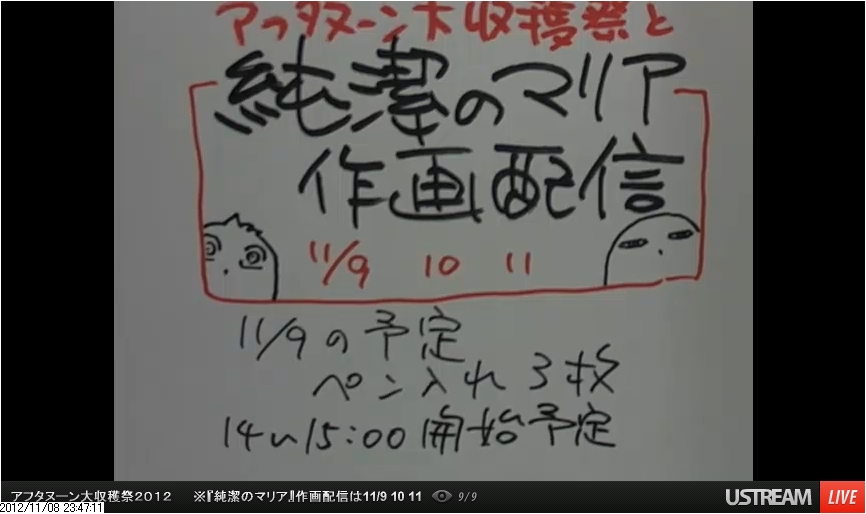 アフタヌーン大収穫祭と
純潔のマリア
作画配信
11/9 10 11
11/9の予定
ペン入れ3枚
14〜15:00開始予定
アフタヌーン大収穫祭2012 ※『純潔のマリア』作画配信は11/9 10 11 9/9 USTREAM LIVE
2012/11/08 23:47:11